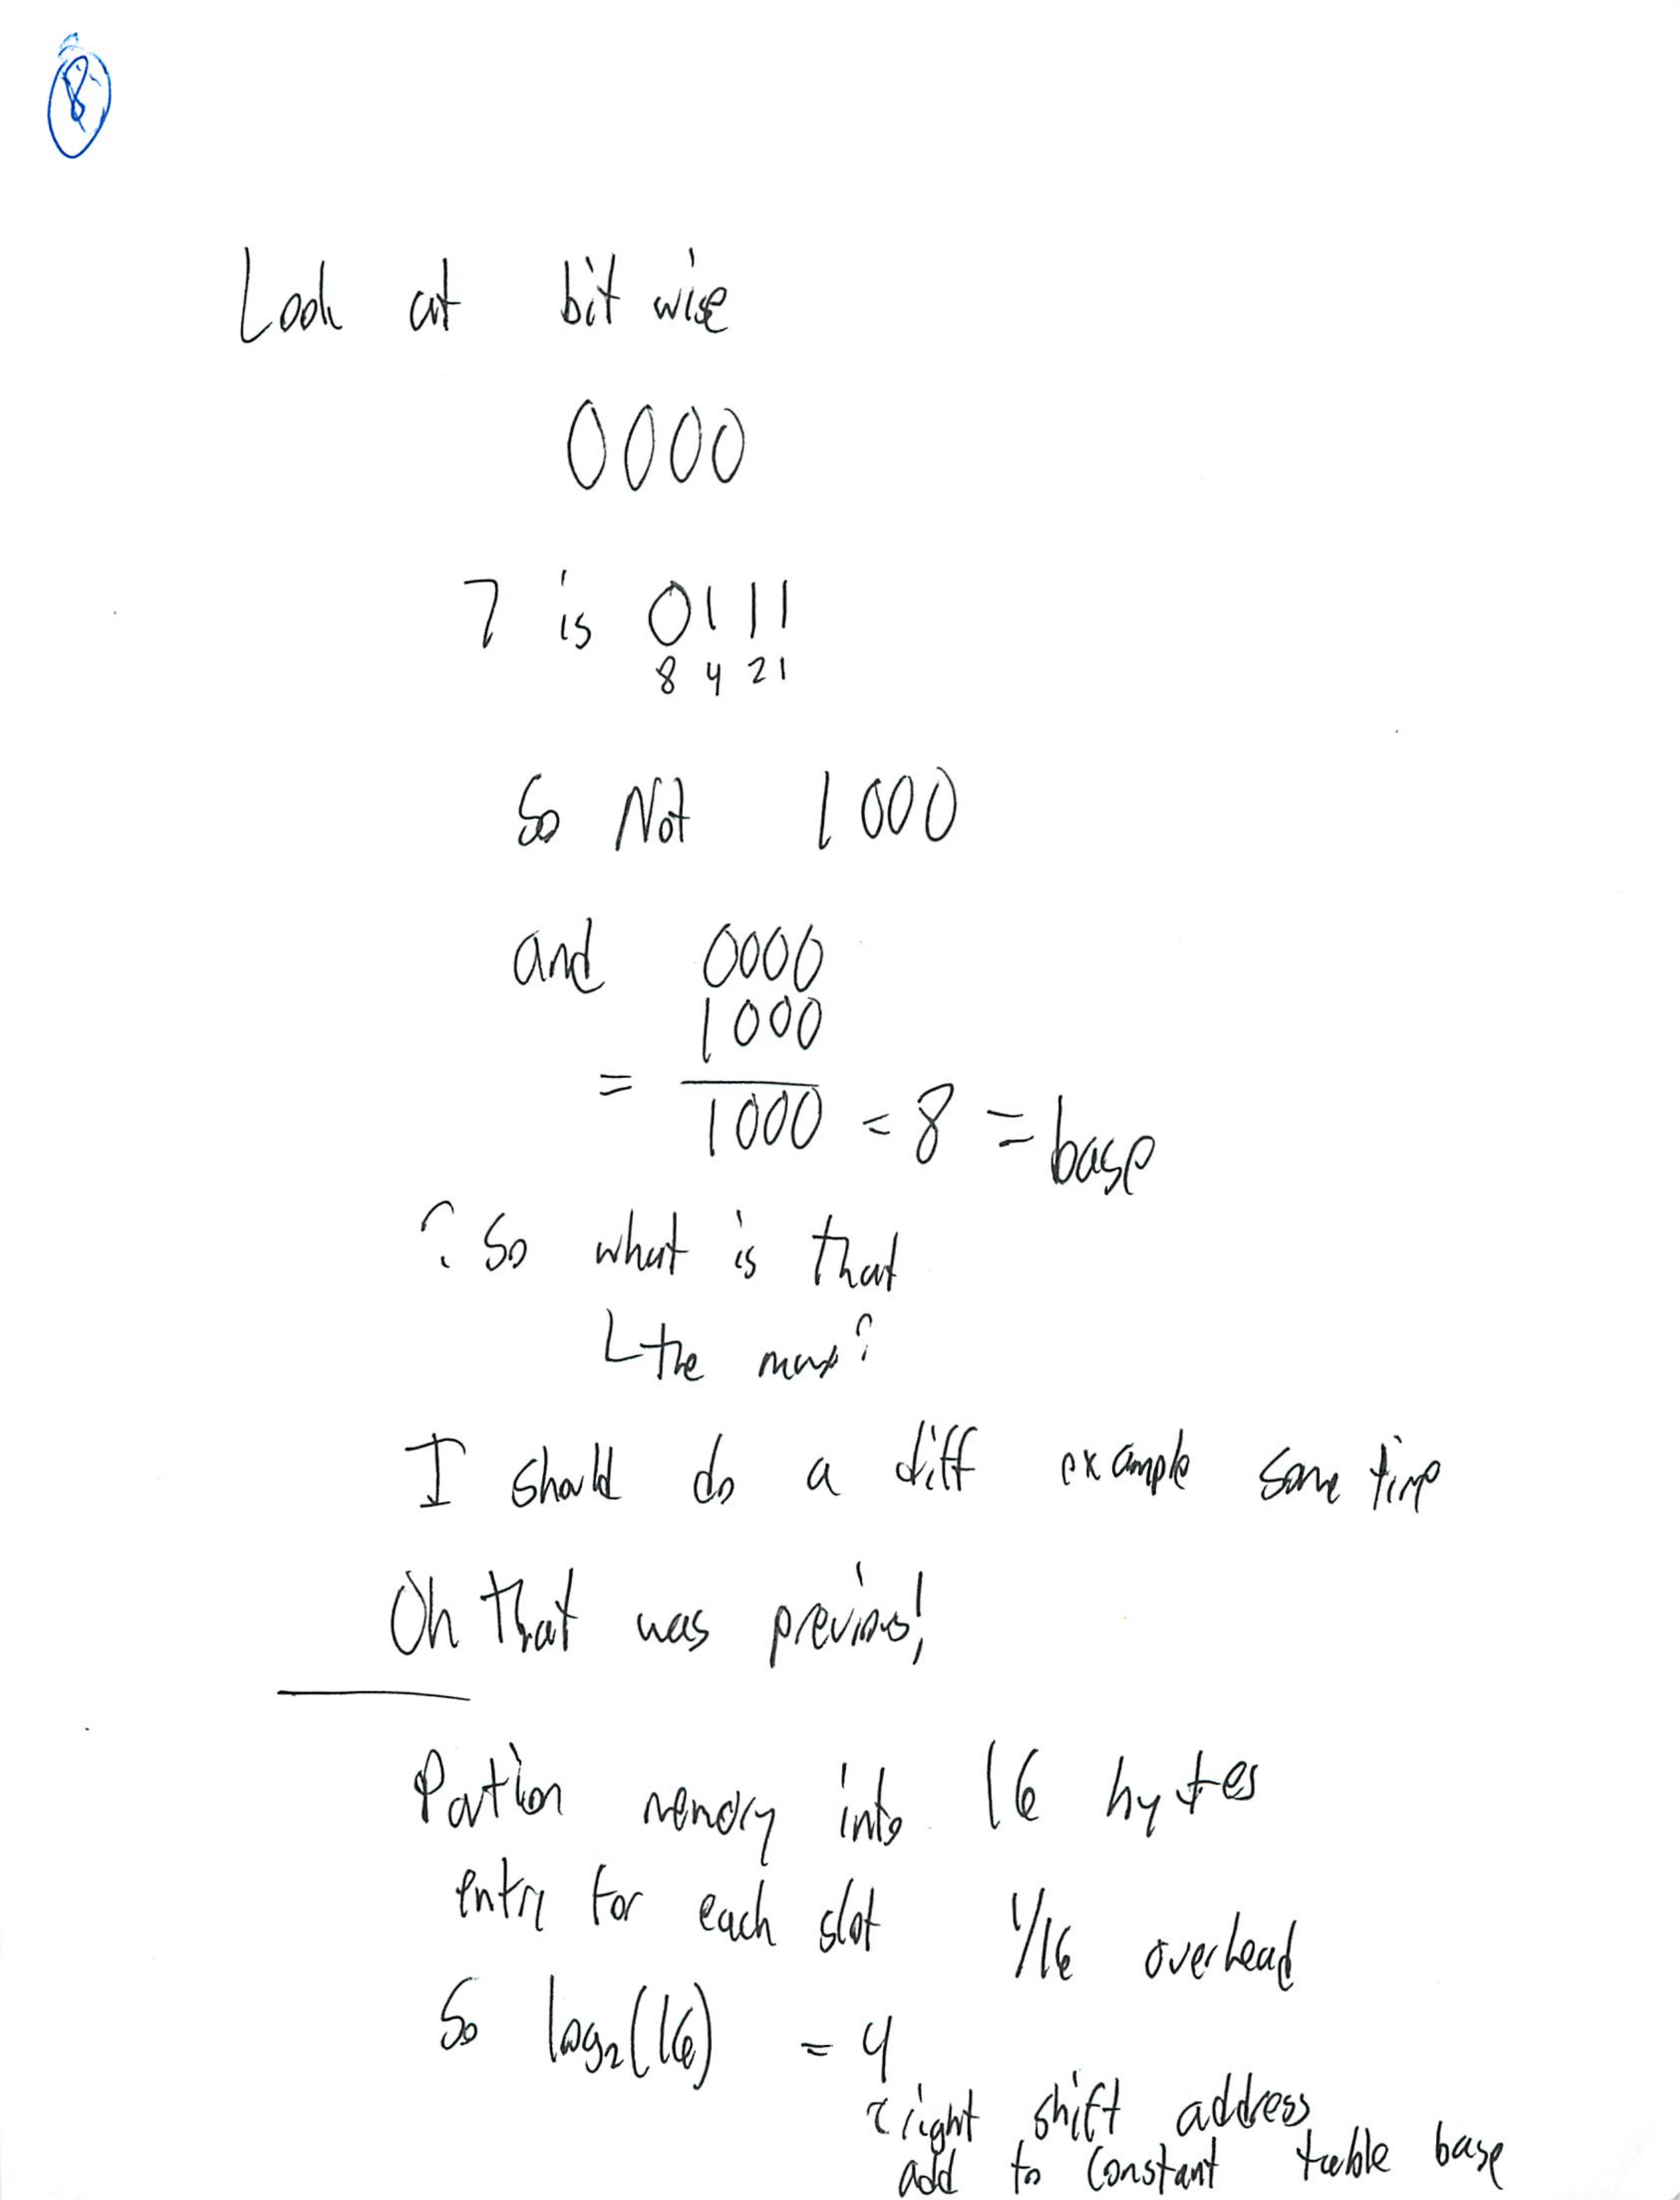 8
Look at bit wise
0000
7 is 0111
8 4 2 1
So Not 1000
and 0000
1000
= 1000 = 8 = base
? So what is that
the max?
I should do a diff example some time
Oh that was previous!
Partion memory into 16 bytes
entry for each slot 1/16 overhead
So log2(16) = 4
right shift address
add to constant table base